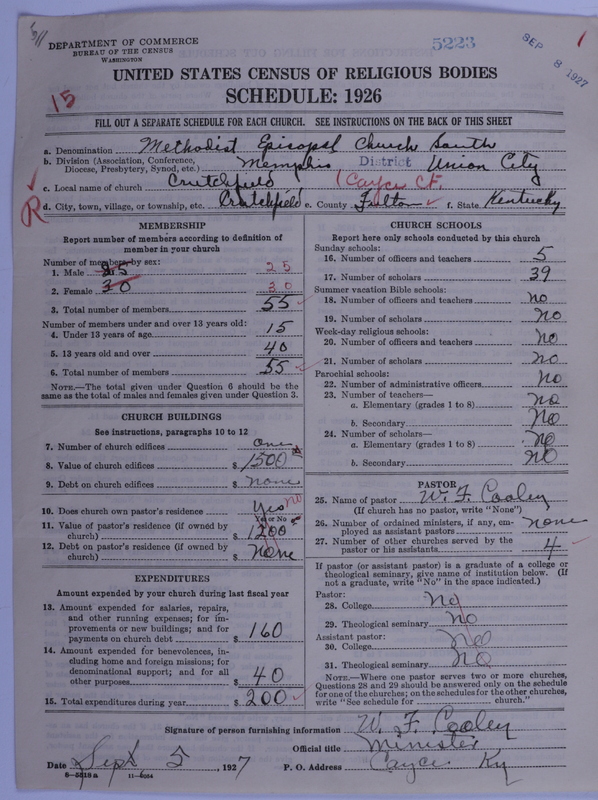 DEPARTMENT OF COMMERCE
BUREAU OF THE CENSUS
WASHINGTON
5223
SEP 8 1927
UNITED STATES CENSUS OF RELIGIOUS BODIES
SCHEDULE: 1926
15
FILL OUT A SEPARATE SCHEDULE FOR EACH CHURCH. SEE INSTRUCTIONS ON THE BACK OF THIS SHEET
a. Denomination Methodist Episcopal Church South
b. Division (Association, Conference, Diocese, Presbytery, Synod, etc.) Memphis District Union City
c. Local name of church Crutchfield (Cayce Ct.
d. City, town, village, or township, etc. Crutchfield e. County Fulton f. State Kentucky
R
MEMBERSHIP
Report number of members according to definition of member in your church
Number of members by sex:
1. Male 25 25
2. Female 30 30
3. Total number of members 55
Number of members under and over 13 years old:
4. Under 13 years of age 15
5. 13 years old and over 40
6. Total number of members 55
NOTE.—The total given under Question 6 should be the same as the total of males and females given under Question 3.
CHURCH BUILDINGS
See instructions, paragraphs 10 to 12
7. Number of church edifices one
8. Value of church edifices $ 1500
9. Debt on church edifices $ none
10. Does church own pastor's residence Yes no
Yes or No
11. Value of pastor's residence (if owned by church) $ 1200
12. Debt on pastor's residence (if owned by church) $ none
EXPENDITURES
Amount expended by your church during last fiscal year
13. Amount expended for salaries, repairs, and other running expenses; for improvements or new buildings; and for payments on church debt $ 160
14. Amount expended for benevolences, including home and foreign missions; for denominational support; and for all other purposes $ 40
15. Total expenditures during year $ 200
CHURCH SCHOOLS
Report here only schools conducted by this church
Sunday schools:
16. Number of officers and teachers 5
17. Number of scholars 39
Summer vacation Bible schools:
18. Number of officers and teachers no
19. Number of scholars No
Week-day religious schools:
20. Number of officers and teachers No
21. Number of scholars No
Parochial schools:
22. Number of administrative officers No
23. Number of teachers—
a. Elementary (grades 1 to 8) No
b. Secondary No
24. Number of scholars—
a. Elementary (grades 1 to 8) No
b. Secondary No
PASTOR
25. Name of pastor W. F. Cooley
(If church has no pastor, write "None")
26. Number of ordained ministers, if any, employed as assistant pastors none
27. Number of other churches served by the pastor or his assistants 4
If pastor (or assistant pastor) is a graduate of a college or theological seminary, give name of institution below. (If not a graduate, write "No" in the space indicated.)
Pastor:
28. College No
29. Theological seminary No
Assistant pastor:
30. College No
31. Theological seminary No
NOTE.—Where one pastor serves two or more churches, Questions 28 and 29 should be answered only on the schedule for one of the churches; on the schedules for the other churches, write "See schedule for ------ church."
Signature of person furnishing information W. F. Cooley
Official title Minister
Date Sept 5, 1927 P. O. Address Cayce Ky
6-5518a 11-9054